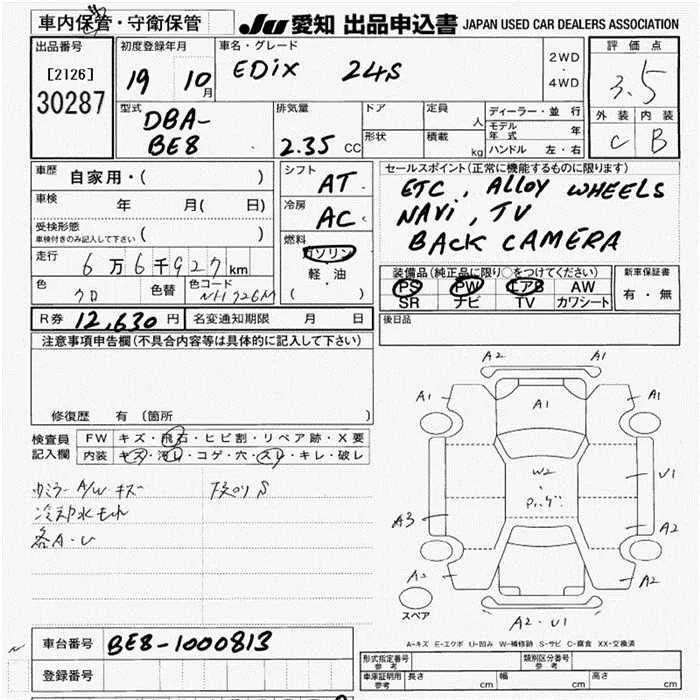 車内保管・守衛保管
JU 愛知 出品申込書 JAPAN USED CAR DEALERS ASSOCIATION
出品番号
[2126]
30287
初度登録年月
19 10月
車名・グレード
EDiX 24S
2WD
・
4WD
評価点
3.5
外装 内装
C B
型式
DBA-
BE8
排気量
2.35 CC
ドア
定員 人
形状
積載 kg
ディーラー・並行
モデル年式 年
ハンドル 左・右
車歴 自家用・( )
車検 年 月( 日)
受検形態
車検付きのみ記入して下さい ( )
走行 6万6千927km
色 クロ 色替 色コード NH726M
シフト AT
冷房 AC
燃料
ガソリン
軽・油
( )
セールスポイント(正常に機能するものに限ります)
ETC, Alloy WHEELS
NAVi, TV
BACK CAMERA
装備品(純正品に限り○をつけてください)
PS PW エアB AW
SR ナビ TV カワシート
新車保証書
有・無
R券 12,630円 名変通知期限 月 日
後日品
注意事項申告欄(不具合内容等は具体的に記入して下さい)
修復歴 有 (箇所 )
検査員
記入欄
FW キズ・飛石・ヒビ割・リペア跡・X要
内装 キズ・汚レ・コゲ・穴・スレ・キレ・破レ
A/Wキズ
冷却水もれ
各A・U
A2 A1
A1 A1 A1
W2
U1
A3 A2
A2 A2
スペア
A2・U1
A-キズ E-エクボ U-凹み W-補修跡 S-サビ C-腐食 XX-交換済
車台番号 BE8-1000813
登録番号
形式指定番号
参考
類別区分番号
参考
車庫証明用
参考
長さ cm 幅 cm 高さ cm